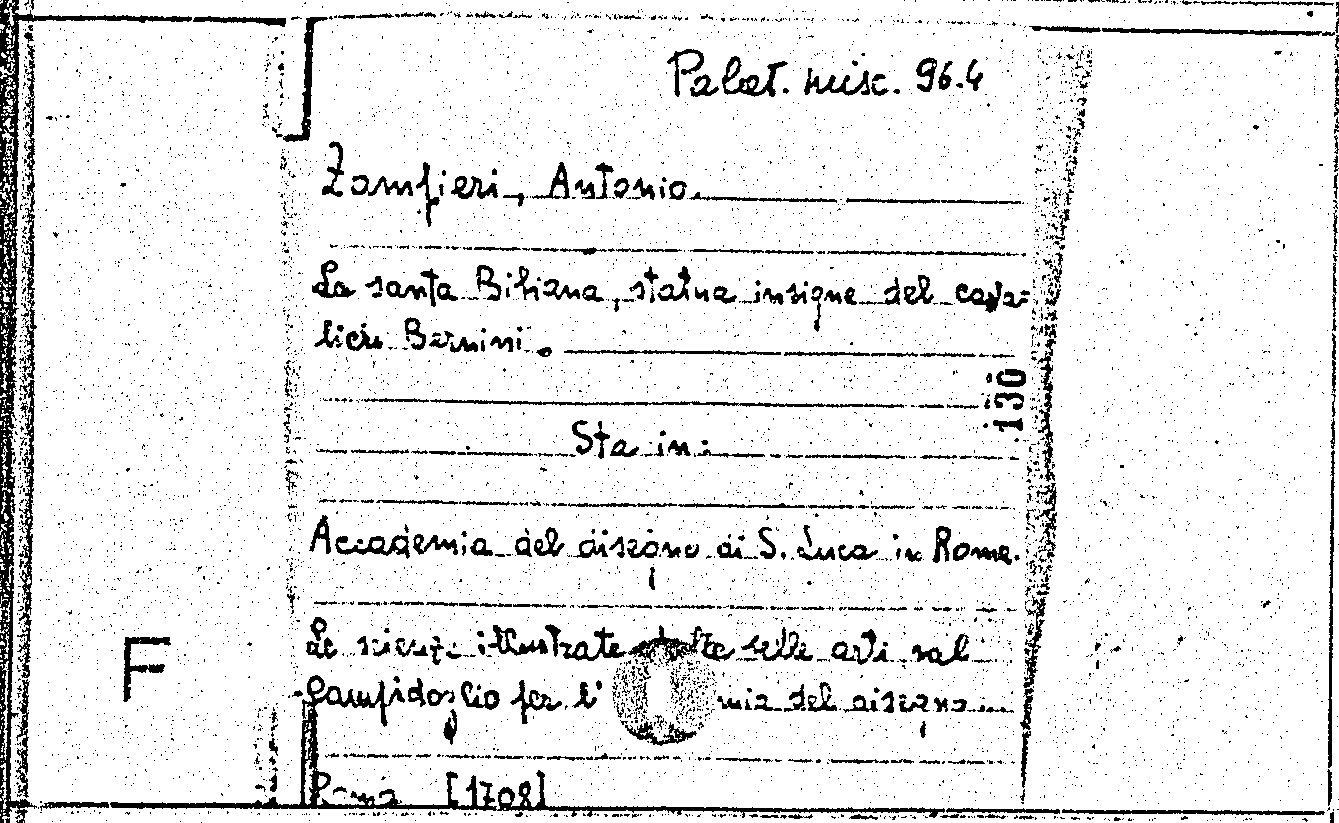 Palat. misc. 96.4
Zamfieri, Antonio.
La santa Bibiana, statua insigne del cava=
liere Bernini.
130
Sta in:
Accademia del disegno di S. Luca in Roma.
Le scienze illustrate dalle belle arti nel
F
Campidoglio per l' mia del disegno...
Roma [1708]